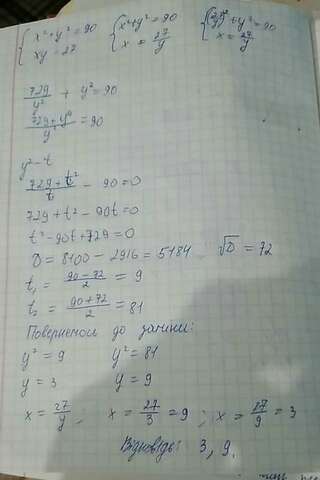 { x² + y² = 90   { x² + y² = 90   { (27/y)² + y² = 90
xy = 27   x = 27/y   x = 27/y
729/y² + y² = 90
729 + y⁴/y² = 90
y² - t
729 + t²/t - 90 = 0
729 + t² - 90t = 0
t² - 90t + 729 = 0
D = 8100 - 2916 = 5184   √D = 72
t₁ = 90 - 72/2 = 9
t₂ = 90 + 72/2 = 81
Повернемось до заміни:
y² = 9   y² = 81
y = 3   y = 9
x = 27/y ; x = 27/3 = 9 ; x = 27/9 = 3
Відповідь: 3, 9.